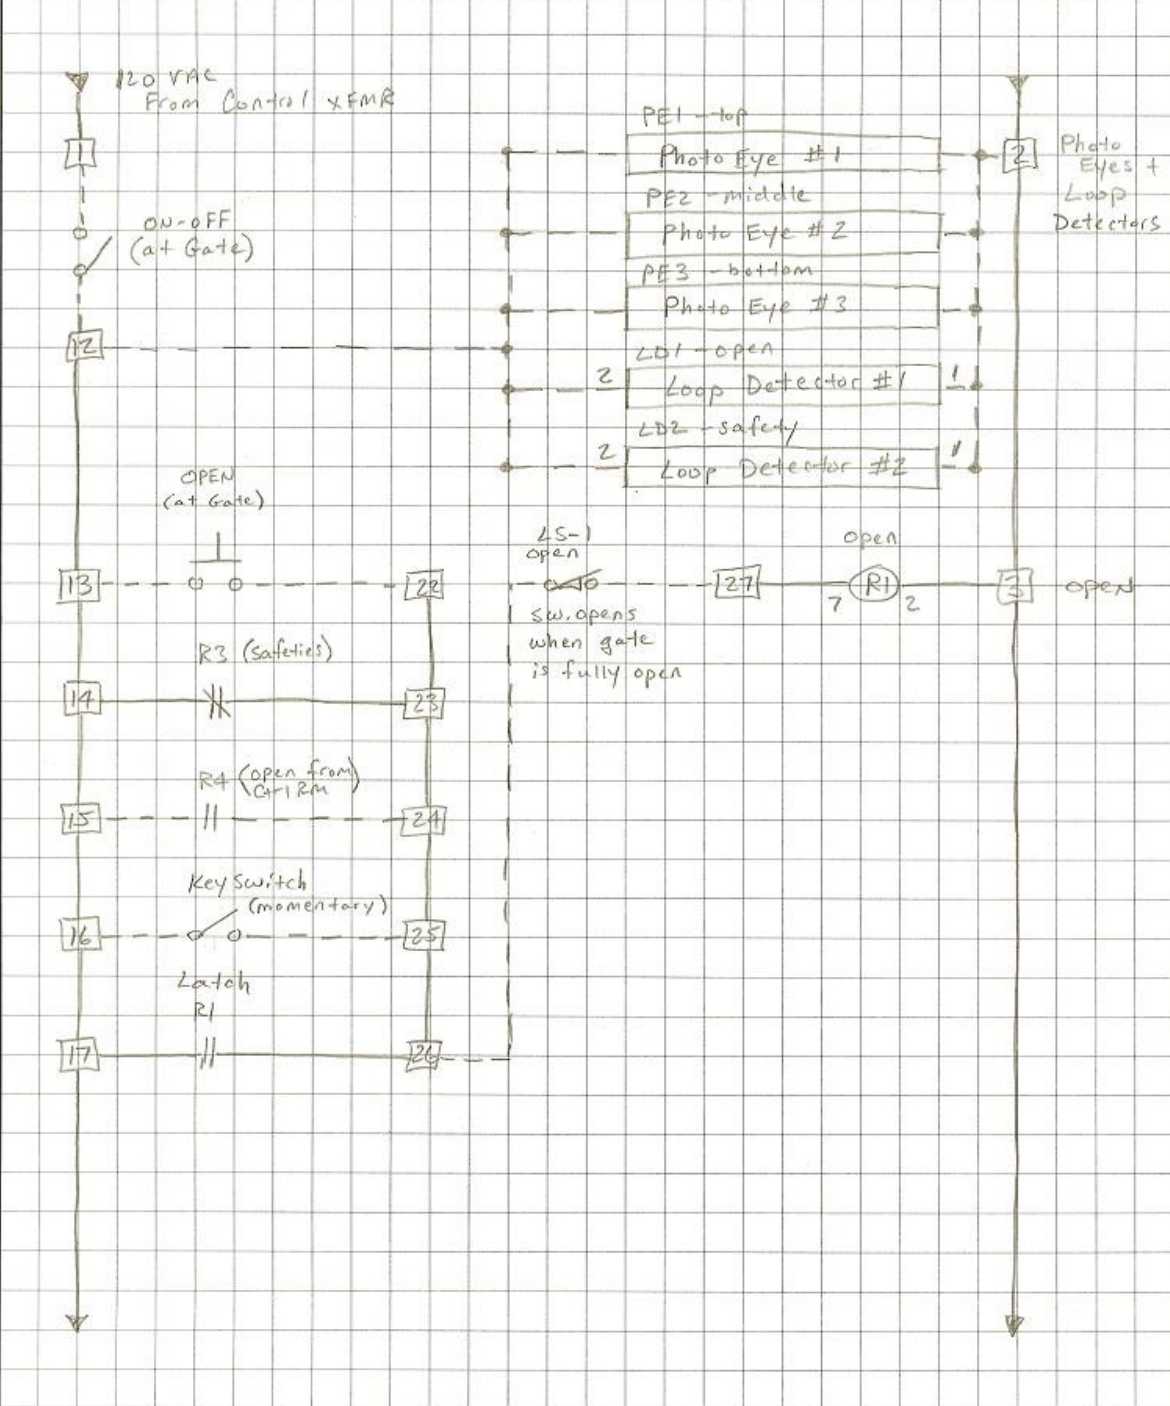 120 VAC
From Control XFMR
1
ON-OFF
(at Gate)
12
PE1 - top
Photo Eye #1
PE2 - middle
Photo Eye #2
PE3 - bottom
Photo Eye #3
LD1 - open
2 Loop Detector #1 1
LD2 - safety
2 Loop Detector #2 1
2
Photo
Eyes +
Loop
Detectors
OPEN
(at Gate)
13
22
LS-1
open
sw. opens
when gate
is fully open
27
open
7 R1 2
3
OPEN
R3 (safeties)
14
23
R4 (open from
Ctrl RM)
15
24
Key Switch
(momentary)
16
25
Latch
R1
17
26